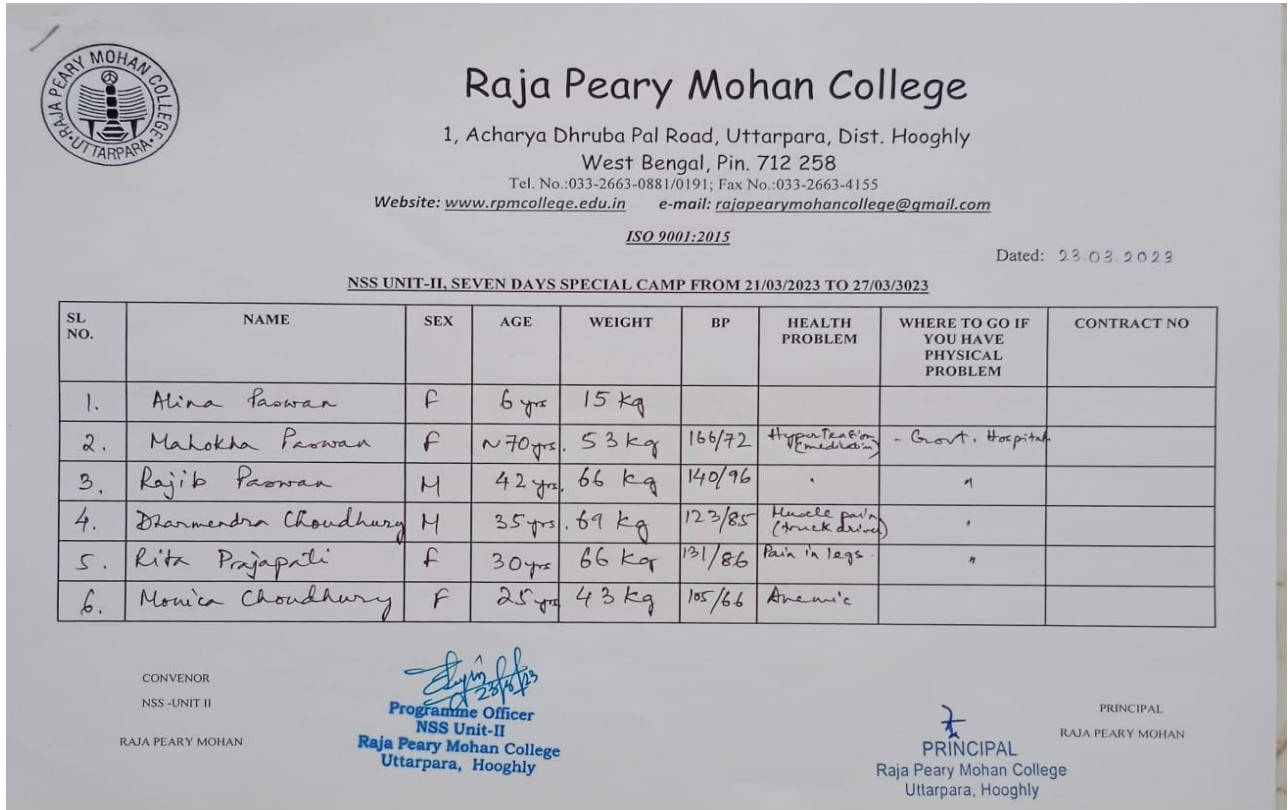 RAJA PEARY MOHAN COLLEGE
UTTARPARA
Raja Peary Mohan College
1, Acharya Dhruba Pal Road, Uttarpara, Dist. Hooghly
West Bengal, Pin. 712 258
Tel. No.:033-2663-0881/0191; Fax No.:033-2663-4155
Website: www.rpmcollege.edu.in e-mail: rajapearymohancollege@gmail.com
ISO 9001:2015
Dated: 23.03.2023
NSS UNIT-II, SEVEN DAYS SPECIAL CAMP FROM 21/03/2023 TO 27/03/3023
SL NO. NAME SEX AGE WEIGHT BP HEALTH PROBLEM WHERE TO GO IF YOU HAVE PHYSICAL PROBLEM CONTRACT NO
1. Alina Paswan F 6 yrs 15 kg
2. Mahokha Paswan F ~70yrs. 53 kg 166/72 Hypertension - Govt. Hospital
3. Rajib Paswan M 42 yrs. 66 kg 140/96 "
4. Dharmendra Choudhury M 35 yrs. 69 kg 123/85 Muscle pain (truck driver) "
5. Rita Prajapati F 30yrs 66 kg 131/86 Pain in legs. "
6. Monica Choudhury F 25 yrs 43 kg 105/66 Anemic
CONVENOR
NSS -UNIT II
RAJA PEARY MOHAN
23/3/23
Programme Officer
NSS Unit-II
Raja Peary Mohan College
Uttarpara, Hooghly
PRINCIPAL
Raja Peary Mohan College
Uttarpara, Hooghly
PRINCIPAL
RAJA PEARY MOHAN